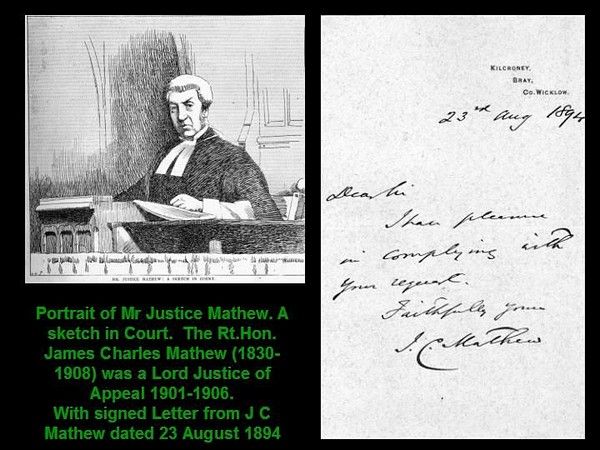 MR. JUSTICE MATHEW: A SKETCH IN COURT.
Portrait of Mr Justice Mathew. A
sketch in Court. The Rt.Hon.
James Charles Mathew (1830-
1908) was a Lord Justice of
Appeal 1901-1906.
With signed Letter from J C
Mathew dated 23 August 1894
KILCRONEY,
BRAY,
CO. WICKLOW.
23rd Aug 1894
Dear Sir
I have pleasure
in complying with
your request.
Faithfully yours
J. C. Mathew